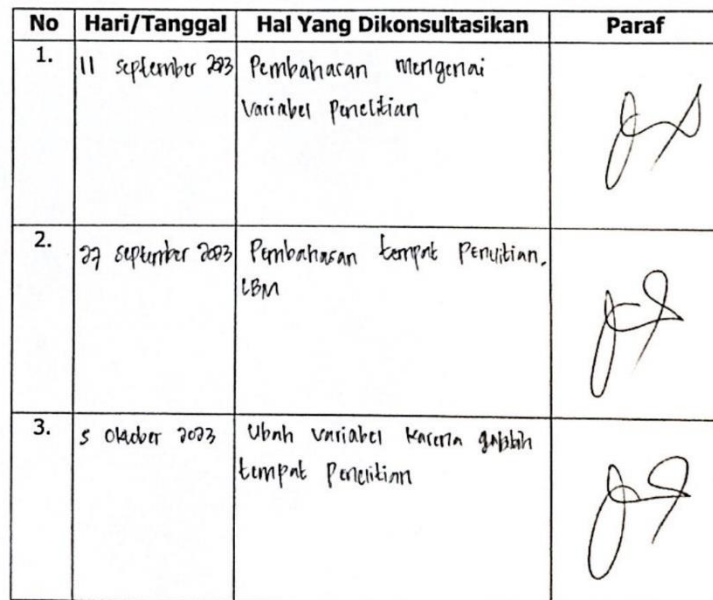 No Hari/Tanggal Hal Yang Dikonsultasikan Paraf
1. 11 september 2023 Pembahasan mengenai
Variabel penelitian
2. 27 september 2023 Pembahasan tempat Penelitian,
LBM
3. 5 Oktober 2023 Ubah variabel karena
tempat Penelitian